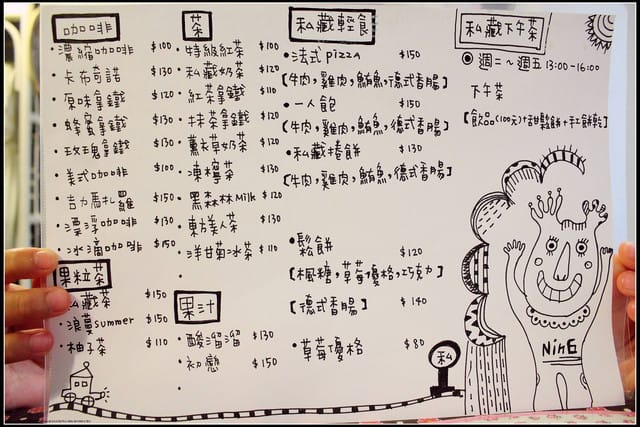 咖啡
濃縮咖啡 $100
卡布奇諾 $130
原味拿鐵 $120
蜂蜜拿鐵 $130
玫瑰拿鐵 $130
美式咖啡 $100
吉力馬扎羅 $150
漂浮咖啡 $130
冰滴咖啡 $150
果粒茶
私藏茶 $150
浪蔓summer $150
柚子茶 $110
茶
特級紅茶 $100
私藏奶茶 $120
紅茶拿鐵 $110
抹茶拿鐵 $130
薰衣草奶茶 $120
凍檸茶 $130
黑森林Milk $120
東方美人茶 $130
洋甘菊冰茶 $110
果汁
酸溜溜 $130
初戀 $150
私藏輕食
法式pizza $150
[牛肉,雞肉,鮪魚,德式香腸]
一人飽 $150
[牛肉,雞肉,鮪魚,德式香腸]
私藏捲餅 $130
[牛肉,雞肉,鮪魚,德式香腸]
鬆餅 $120
[楓糖,草莓優格,巧克力]
[德式香腸] $140
草莓優格 $80
私
私藏下午茶
週二~週五 13:00-16:00
下午茶
[飲品(100元)+甜鬆餅+手工餅乾]
NinE